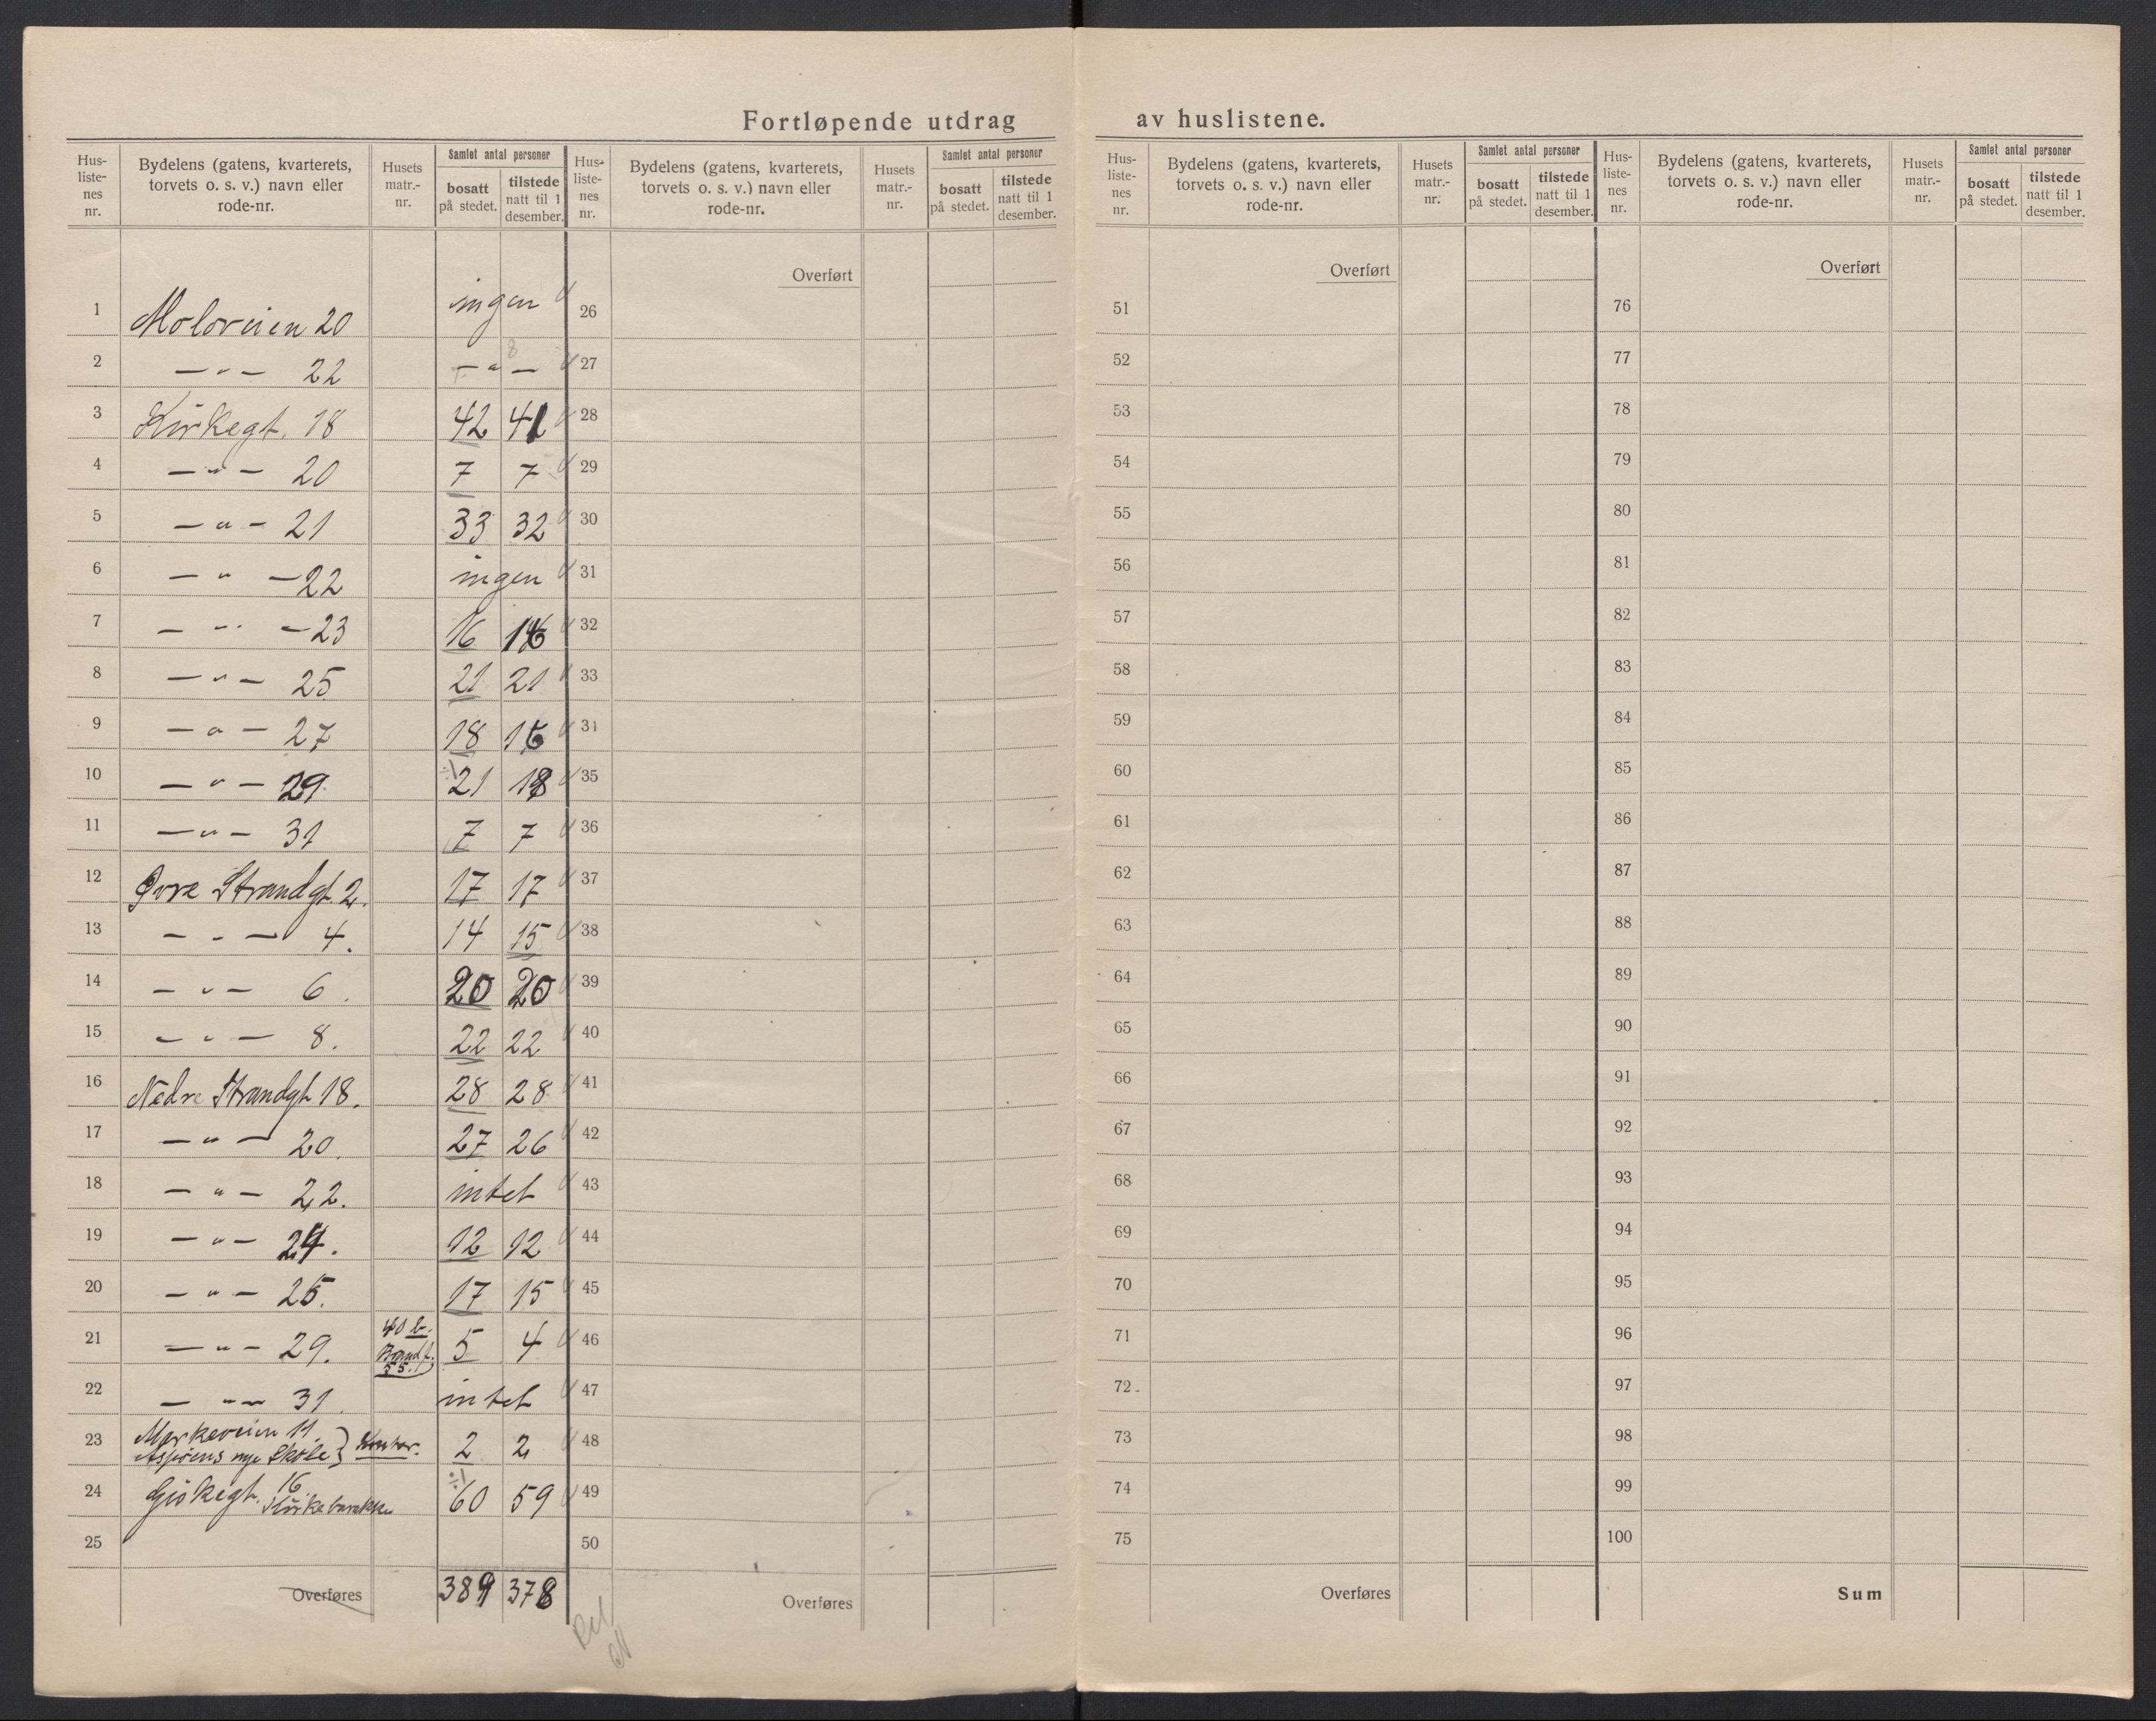 Fortløpende utdrag av huslistene.
Hus-listenes nr. | Bydelens (gatens, kvarterets, torvets o. s. v.) navn eller rode-nr. | Husets matr.-nr. | Samlet antal personer | bosatt på stedet. | tilstede natt til 1 desember.
1 Moloveien 20 ingen
2 — " — 22 — " —
3 Kirkegt. 18 42 41
4 — " — 20 7 7
5 — " — 21 33 32
6 — " — 22 ingen
7 — " — 23 16 16
8 — " — 25 21 21
9 — " — 27 18 16
10 — " — 29 21 18
11 — " — 31 7 7
12 Øvre Strandgt. 2. 17 17
13 — " — 4. 14 15
14 — " — 6. 20 20
15 — " — 8. 22 22
16 Nedre Strandgt 18. 28 28
17 — " — 20. 27 26
18 — " — 22. intet
19 — " — 24. 12 12
20 — " — 25. 17 15
21 — " — 29. 40 b. Brandf. 55. 5 4
22 — " — 31 intet
23 Markeveien 11. Aspøens nye Skole } Kontor. 2 2
24 Giskegt. 16. Kirkebarakke ÷1 60 59
25
Overføres 389 378
Hus-listenes nr. | Bydelens (gatens, kvarterets, torvets o. s. v.) navn eller rode-nr. | Husets matr.-nr. | Samlet antal personer | bosatt på stedet. | tilstede natt til 1 desember.
Overført
26
27
28
29
30
31
32
33
34
35
36
37
38
39
40
41
42
43
44
45
46
47
48
49
50
Overføres
Hus-listenes nr. | Bydelens (gatens, kvarterets, torvets o. s. v.) navn eller rode-nr. | Husets matr.-nr. | Samlet antal personer | bosatt på stedet. | tilstede natt til 1 desember.
Overført
51
52
53
54
55
56
57
58
59
60
61
62
63
64
65
66
67
68
69
70
71
72
73
74
75
Overføres
Hus-listenes nr. | Bydelens (gatens, kvarterets, torvets o. s. v.) navn eller rode-nr. | Husets matr.-nr. | Samlet antal personer | bosatt på stedet. | tilstede natt til 1 desember.
Overført
76
77
78
79
80
81
82
83
84
85
86
87
88
89
90
91
92
93
94
95
96
97
98
99
100
Sum